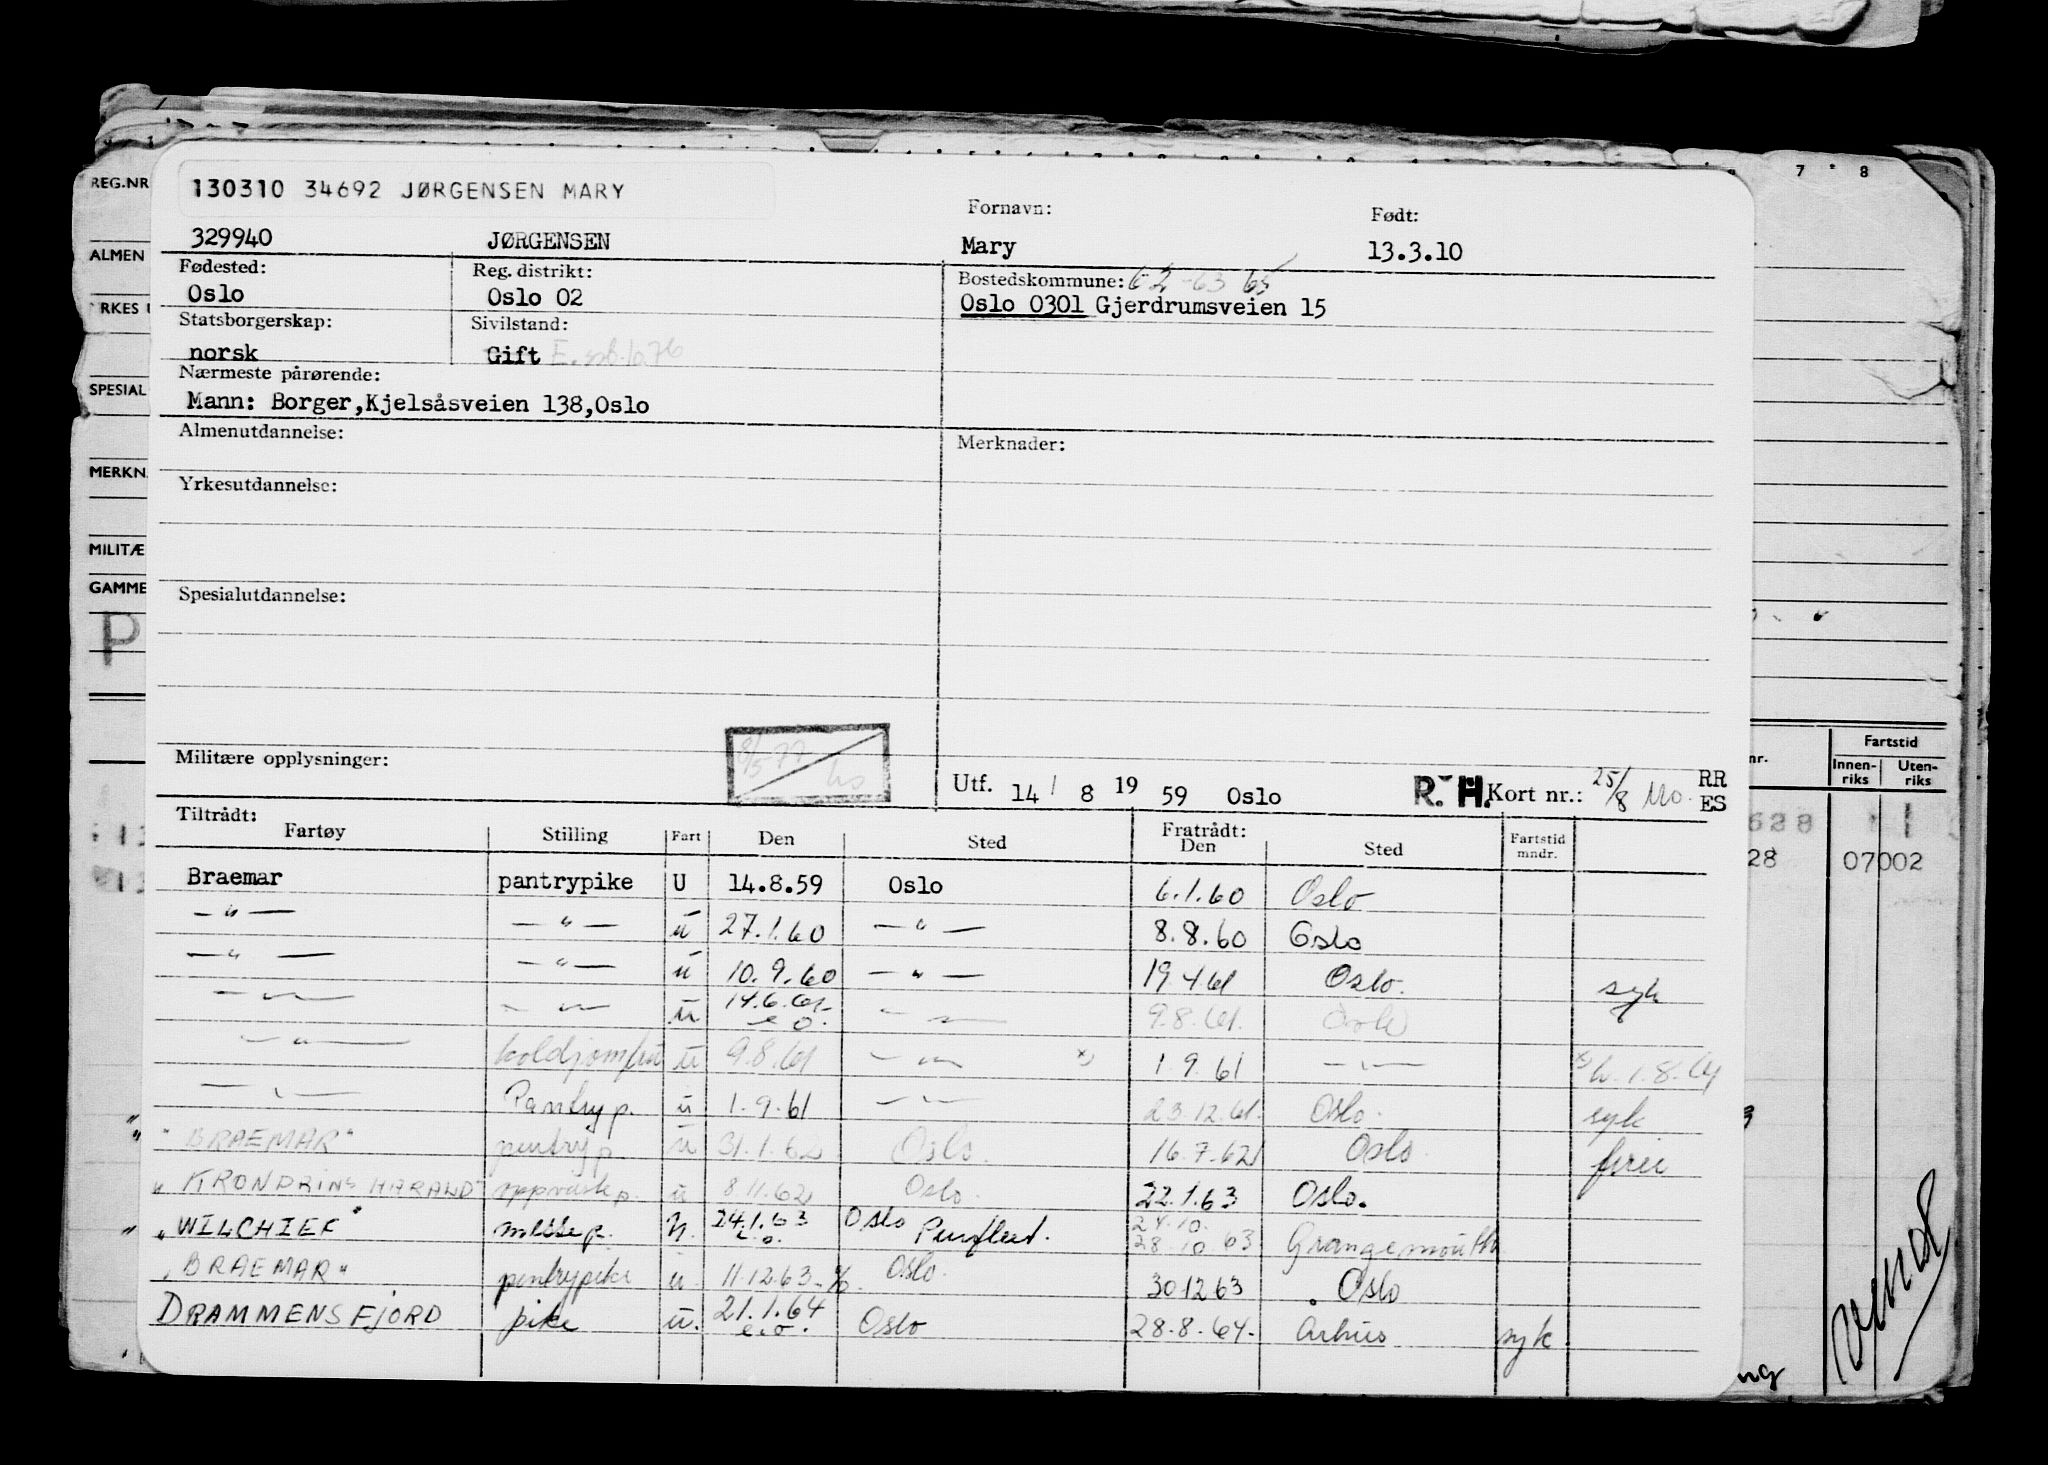 7 8
REG.NR
130310 34692 JØRGENSEN MARY
Fornavn: Født:
329940 JØRGENSEN Mary 13.3.10
ALMEN
Fødested: Reg. distrikt: Bostedskommune: 62-63 65
Oslo Oslo 02 Oslo 0301 Gjerdrumsveien 15
Statsborgerskap: Sivilstand:
norsk Gift
Nærmeste pårørende:
SPESIAL
Mann: Borger,Kjelsåsveien 138,Oslo
Almenutdannelse: Merknader:
MERKN.
Yrkesutdannelse:
MILITÆ
GAMME
Spesialutdannelse:
P
Militære opplysninger: 8/5 77
Utf. 14/ 8 19 59 Oslo R. H. Kort nr.: 25/8 RR ES
nr. Fartstid
Innen-riks Uten-riks
Tiltrådt: Fratrådt:
Fartøy Stilling Fart Den Sted Den Sted Fartstid mndr.
628
28 07002
Braemar pantrypike U 14.8.59 Oslo 6.1.60 Oslo
— " — — " — u 27.1.60 — " — 8.8.60 Oslo
— " — — " — u 10.9.60 — " — 19.4 61 Oslo. syk
— " — — " — u 14.6.61 e.o. — " — 9.8.61. Oslo
— " — koldjomfru u 9.8.61 — " — x) 1.9.61 — " — x)
— " — Pantry p. u 1.9.61 — " — 23.12.61. Oslo. syk
"BRAEMAR" pantry p. u 31.1.62 Oslo. 16.7.62 Oslo ferie
"KRONPRINS HARALD" oppvask p. u 8.11.62 Oslo. 22.1.63 Oslo.
"WILCHIEF" messep. N. 24.1.63 e.o. Oslo Purfleet. 24.10. 28.10.63 Grangemouth
"BRAEMAR" pantrypike u. 11.12.63 - % Oslo. 30 12 63 Oslo
DRAMMENSFJORD pike u. 21.1.64 e.o. Oslo 28.8.64. Arhus syk